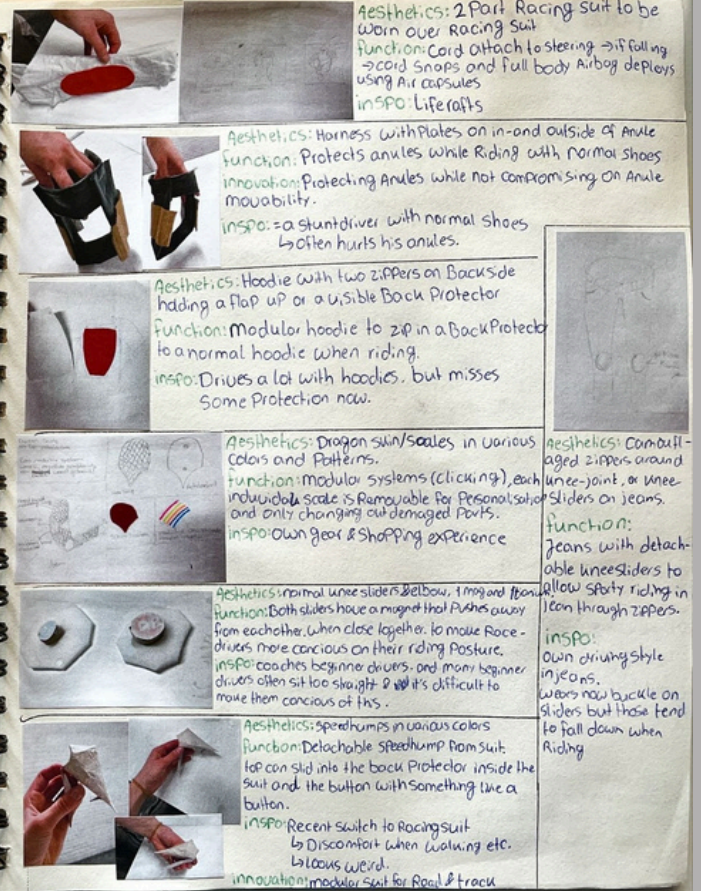 Aesthetics: 2 Part Racing suit to be
worn over Racing Suit
function: Cord attach to steering → if falling
→ cord snaps and full body Airbag deploys
using Air capsules
inspo: Liferafts
Aesthetics: Harness with Plates on in-and outside of Ankle
function: Protects ankles while Riding with normal shoes
innovation: Protecting Ankles while not compromising on Ankle
movability.
inspo: = a stuntdriver with normal shoes
↳ often hurts his ankles.
Aesthetics: Hoodie with two zippers on Backside
holding a flap up or a visible Back Protector
function: modular hoodie to zip in a Back Protector
to a normal hoodie when riding.
inspo: Drives a lot with hoodies, but misses
some Protection now.
Aesthetics: Dragon skin/scales in various
colors and Patterns.
function: modular systems (clicking), each
individual scale is Removable for Personalisation
and only changing out damaged Parts.
inspo: own gear & shopping experience
Aesthetics: normal kneesliders & elbow, 1 mag and
Function: Both sliders have a magnet that Pushes away
from eachother. when close together. to make Race-
drivers more concious on their riding Posture.
inspo: coaches beginner drivers. and many beginner
drivers often sit too straight & it's difficult to
make them concious of this.
Aesthetics: Speedhumps in various colors
Function: Detachable speedhump from suit.
top can slid into the back Protector inside the
suit and the button with something like a
button.
inspo: Recent switch to Racingsuit
↳ Discomfort when walking etc.
↳ Looks weird.
innovation: modular suit for Road & track
Aesthetics: Camoufl-
aged zippers around
knee-joint, or knee
sliders on jeans.
function:
Jeans with detach-
able kneesliders to
allow sporty riding in
jean through zippers.
inspo:
own driving style
in jeans.
wears now buckle on
sliders but those tend
to fall down when
Riding